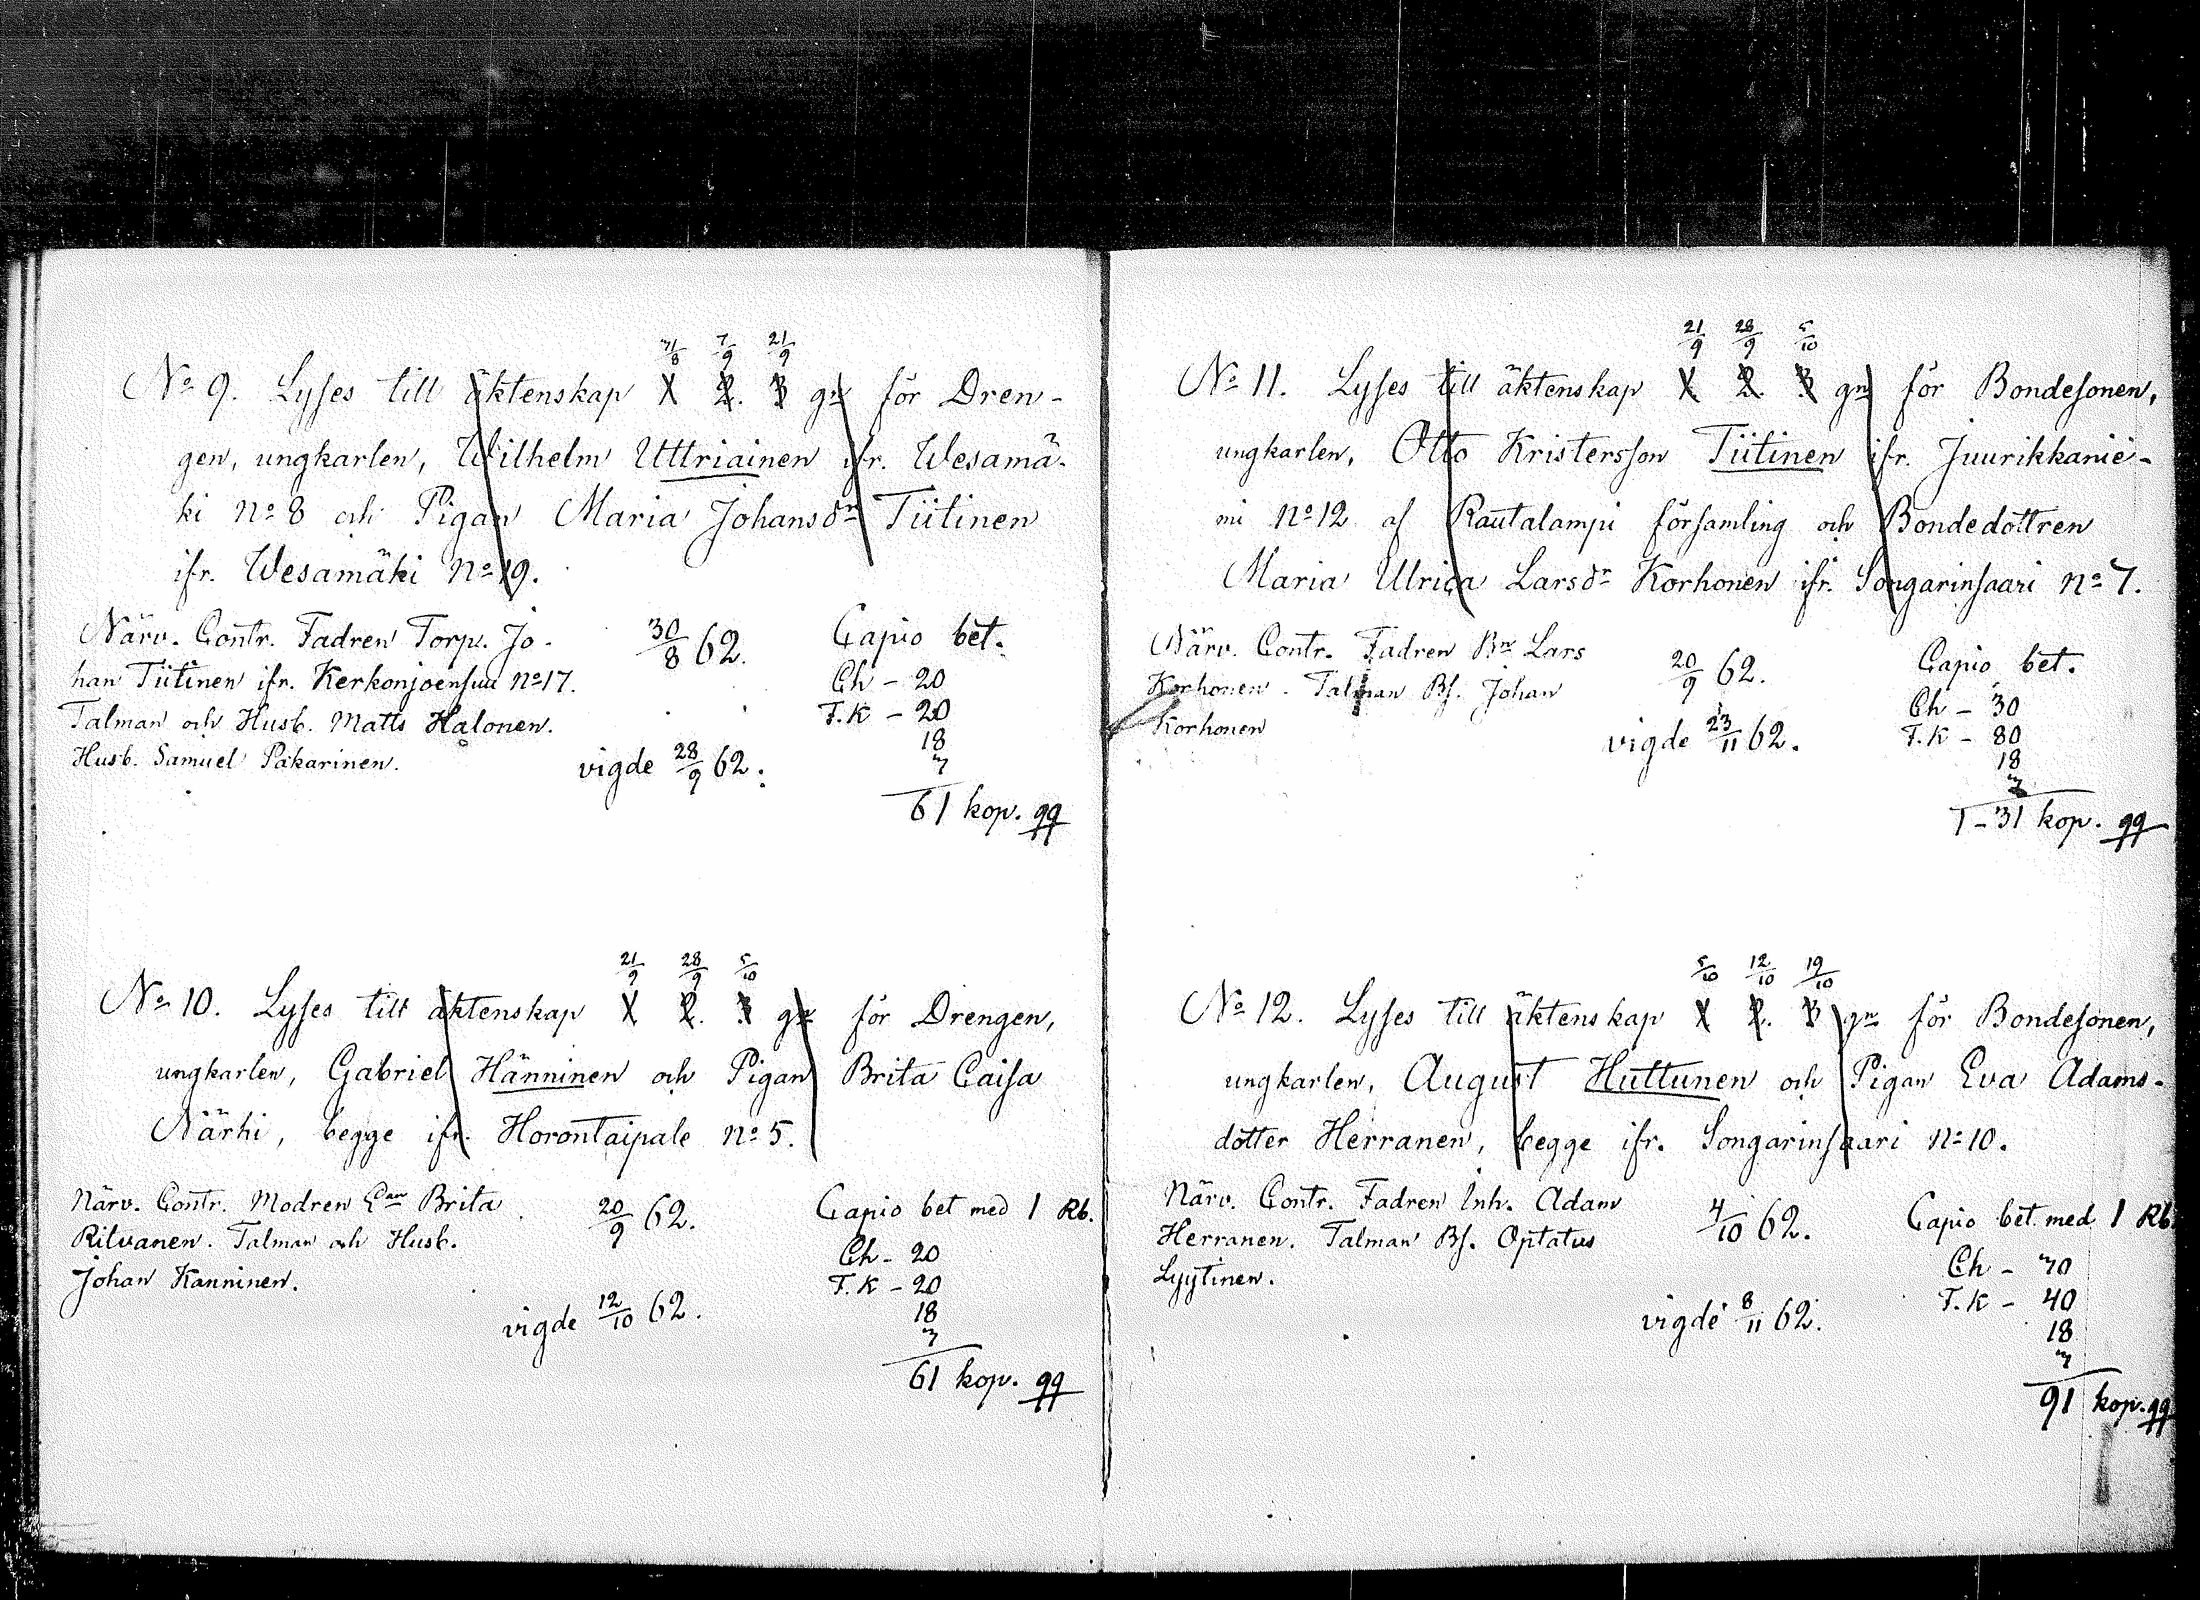 31/8 7/9 21/9
No 9. Lyses till äktenskap 1 2. 3 gn för Dren-
gen, ungkarlen, Wilhelm Uttriainen ifr. Wesamä-
ki no 8 och Pigan Maria Johansdr Tiitinen
ifr. Wesamäki no 19.
Närv. Contr. Fadren Torp. Jo-
han Tiitinen ifr. Kerkonjoensuu no 17.
Talman och Husb. Matts Halonen.
Husb. Samuel Pakarinen.
30/8 62.
vigde 28/9 62.
Capio bet.
Ch - 20
T.K - 20
18
3
61 kop.
21/9 28/9 5/10
No 10. Lyses till äktenskap 1 2. 3 gn för Drengen,
ungkarlen, Gabriel Hänninen och Pigan Brita Caisa
Närhi, begge ifr. Horontaipale no 5.
Närv. Contr. Modren Ean Brita
Ritvanen. Talman och Husb.
Johan Kanninen.
20/9 62.
vigde 12/10 62.
Capio bet med 1 Rb.
Ch - 20
T.K - 20
18
3
61 kop.
21/9 28/9 5/10
No 11. Lyses till äktenskap 1. 2. 3. gn för Bondesonen,
ungkarlen, Otto Kristersson Tiitinen ifr. Juurikkanie-
mi no 12 af Rautalampi församling och Bondedottren
Maria Ulrica Larsdr Korhonen ifr. Songarinsaari no 7.
Närv. Contr. Fadren Bn Lars
Korhonen. Talman Bs. Johan
Korhonen
20/9 62.
vigde 23/11 62.
Capio bet.
Ch - 30
T.K - 80
18
3
1-31 kop.
5/10 12/10 19/10
No 12. Lyses till äktenskap 1 2. 3 gn för Bondesonen,
ungkarlen, August Huttunen och Pigan Eva Adams-
dotter Herranen, begge ifr. Songarinsaari no 10.
Närv. Contr. Fadren Inh. Adam
Herranen. Talman Bs. Optatus
Lyytinen.
4/10 62.
vigde 8/11 62.
Capio bet. med 1 Rb.
Ch - 30
T.K - 40
18
3
91 kop.